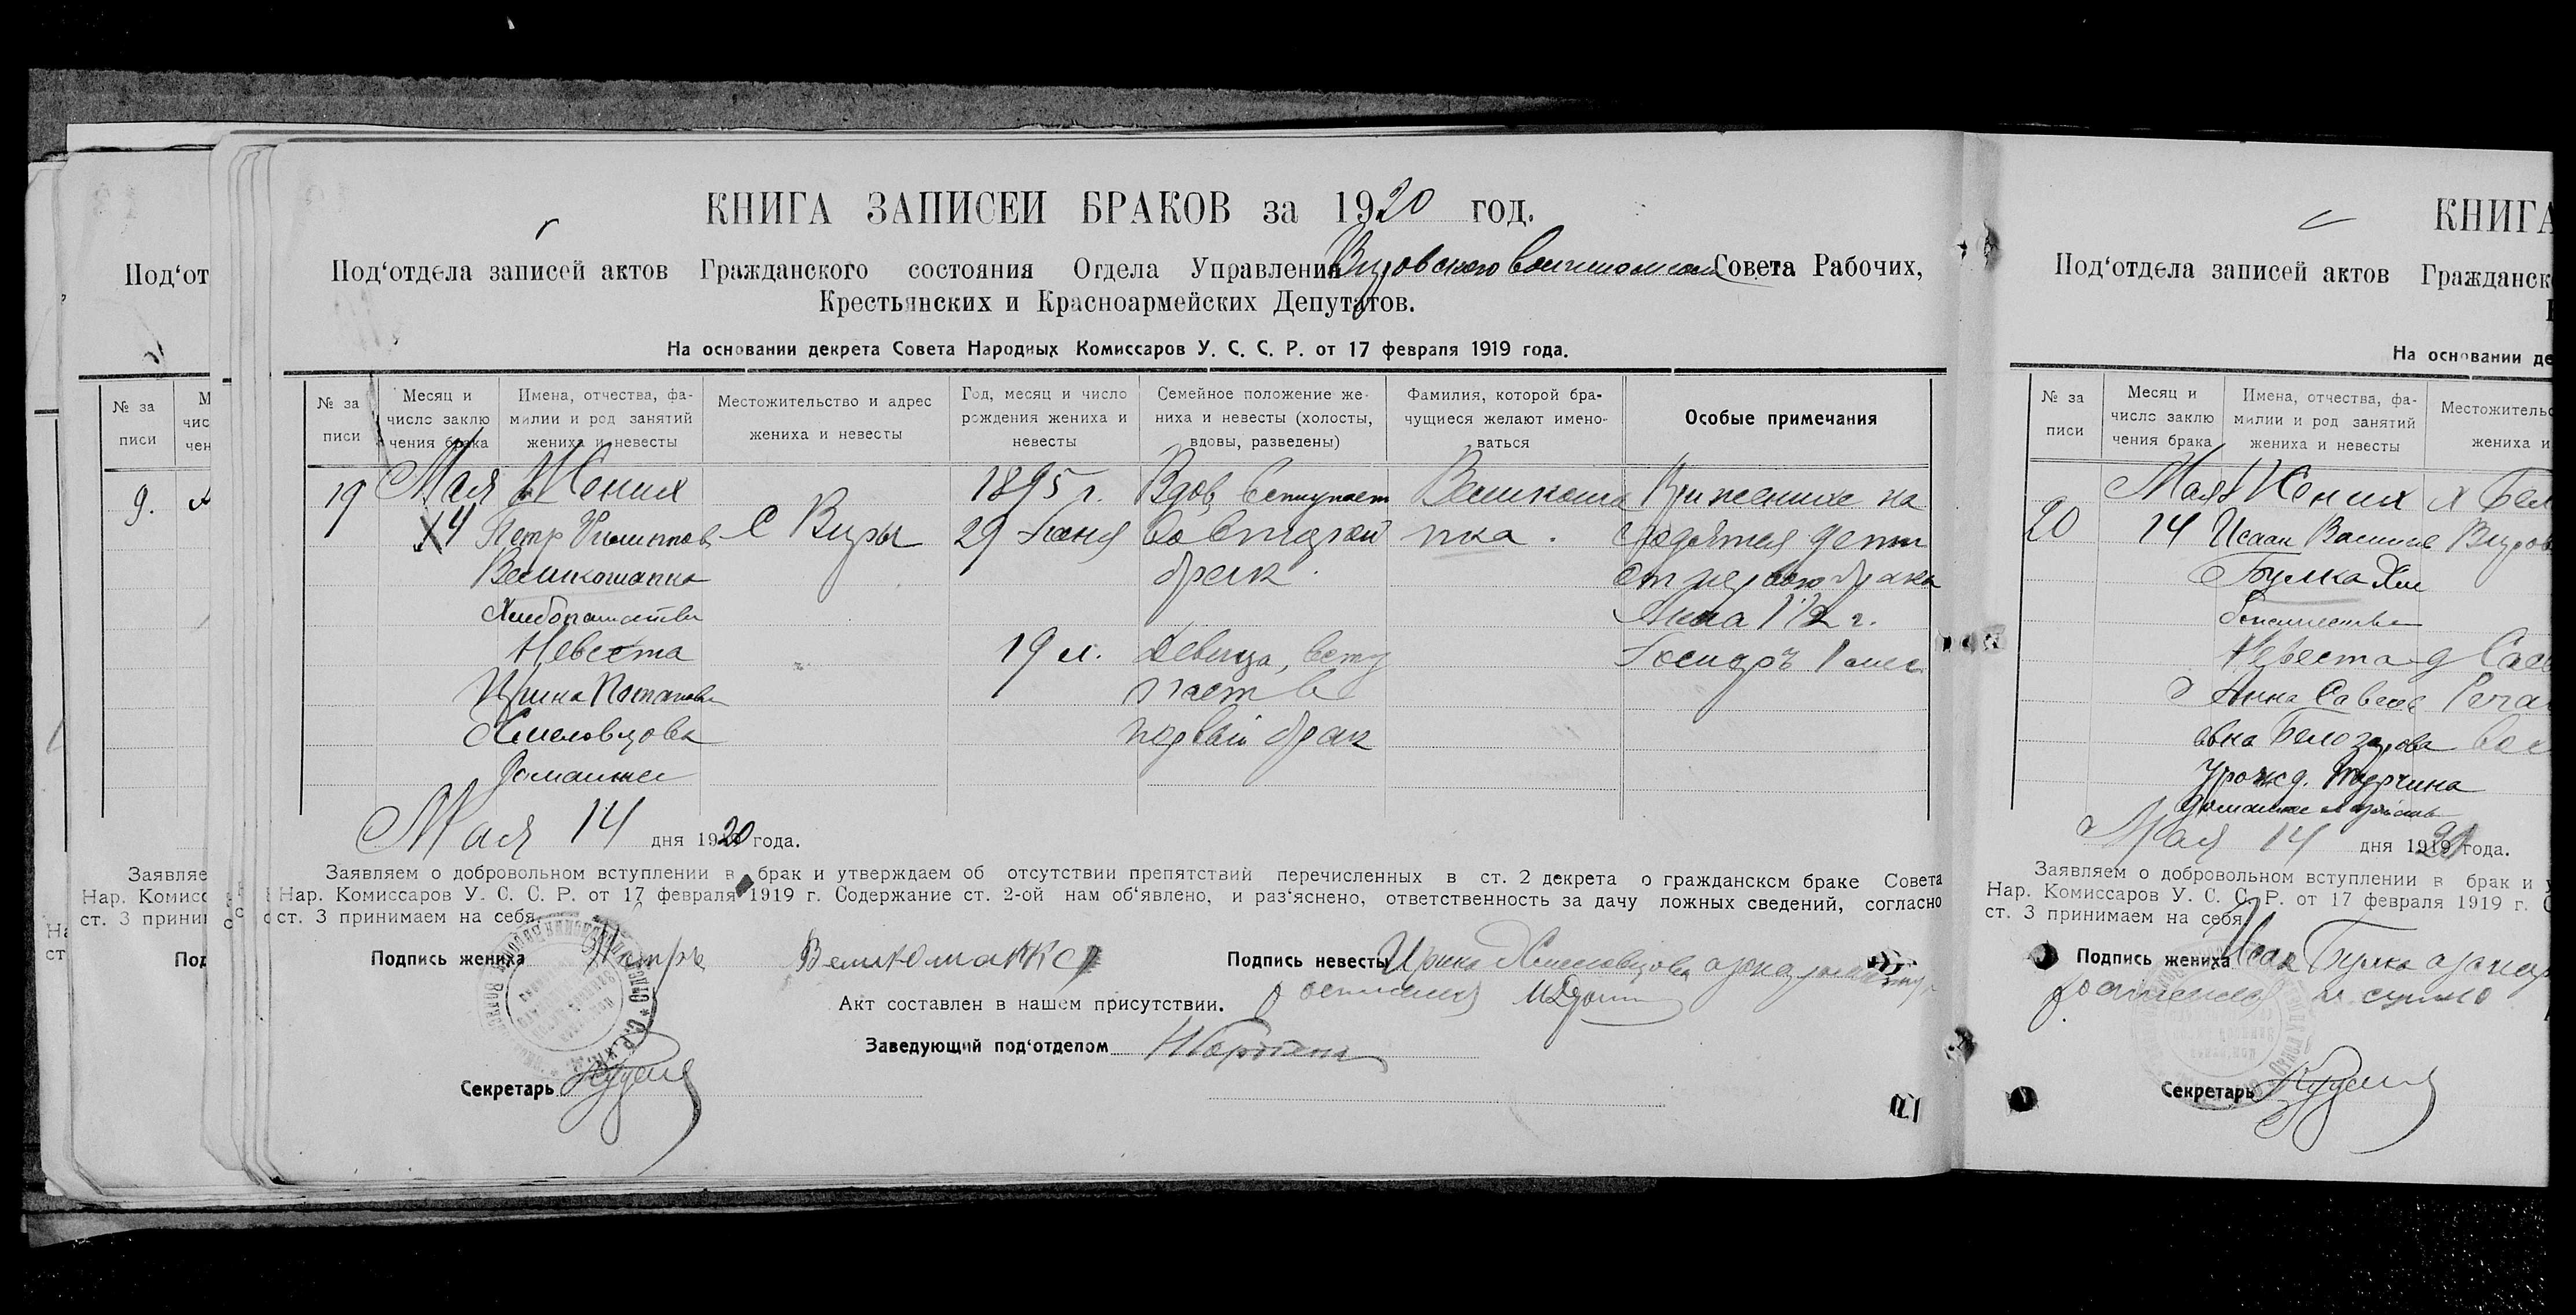 КНИГА ЗАПИСЕЙ БРАКОВ за 1920 год.
Под‘отдела записей актов Гражданского состояния Отдела Управления Вировского Совета Рабочих,
Крестьянских и Красноармейских Депутатов.
На основании декрета Совета Народных Комиссаров У. С. С. Р. от 17 февраля 1919 года.
№ записи
Месяц и число заключения брака
Имена, отчества, фамилии и род занятий жениха и невесты
Местожительство и адрес жениха и невесты
Год, месяц и число рождения жениха и невесты
Семейное положение жениха и невесты (холосты, вдовы, разведены)
Фамилия, которой брачущиеся желают именоваться
Особые примечания
19 Мая Жених 1895 г. Вдов вступает Великоша При женихе на
14 Петр Филиппов С Виры 29 Июня во второй пка. ходятся дети
Великошапка брак от первого брака
Хлебопашество Анна 1 1/2 г.
Невеста 19 л. Девица, всту
Ирина Потапова пает в
Хмеловцова первый брак
Домашнее
Мая 14 дня 1920 года.
Заявляем о добровольном вступлении в брак и утверждаем об отсутствии препятствий перечисленных в ст. 2 декрета о гражданском браке Совета
Нар. Комиссаров У. С. С. Р. от 17 февраля 1919 г. Содержание ст. 2-ой нам об‘явлено, и раз‘яснено, ответственность за дачу ложных сведений, согласно
ст. 3 принимаем на себя.
Подпись жениха Петръ Подпись невесты Ирина Хмеловцова
Акт составлен в нашем присутствии.
Заведующий под‘отделом
Секретарь
КНИГА
Под‘отдела записей актов Гражданск
На основании де
№ записи
Месяц и число заключения брака
Имена, отчества, фамилии и род занятий жениха и невесты
Местожительс
жениха и
Мая Жених
20 14 Исаак Василев Виров
Булка Хле
бопашество
Невеста
Анна Савель
евна Белозорова
Урожд.
Мая 14 дня 1920 года.
Заявляем о добровольном вступлении в брак и у
Нар. Комиссаров У. С. С. Р. от 17 февраля 1919 г. С
ст. 3 принимаем на себя.
Подпись жениха Исаак Булка
Секретарь
Под‘от
№ записи
9.
Заявляе
Нар. Комисс
ст. 3 прини
Под